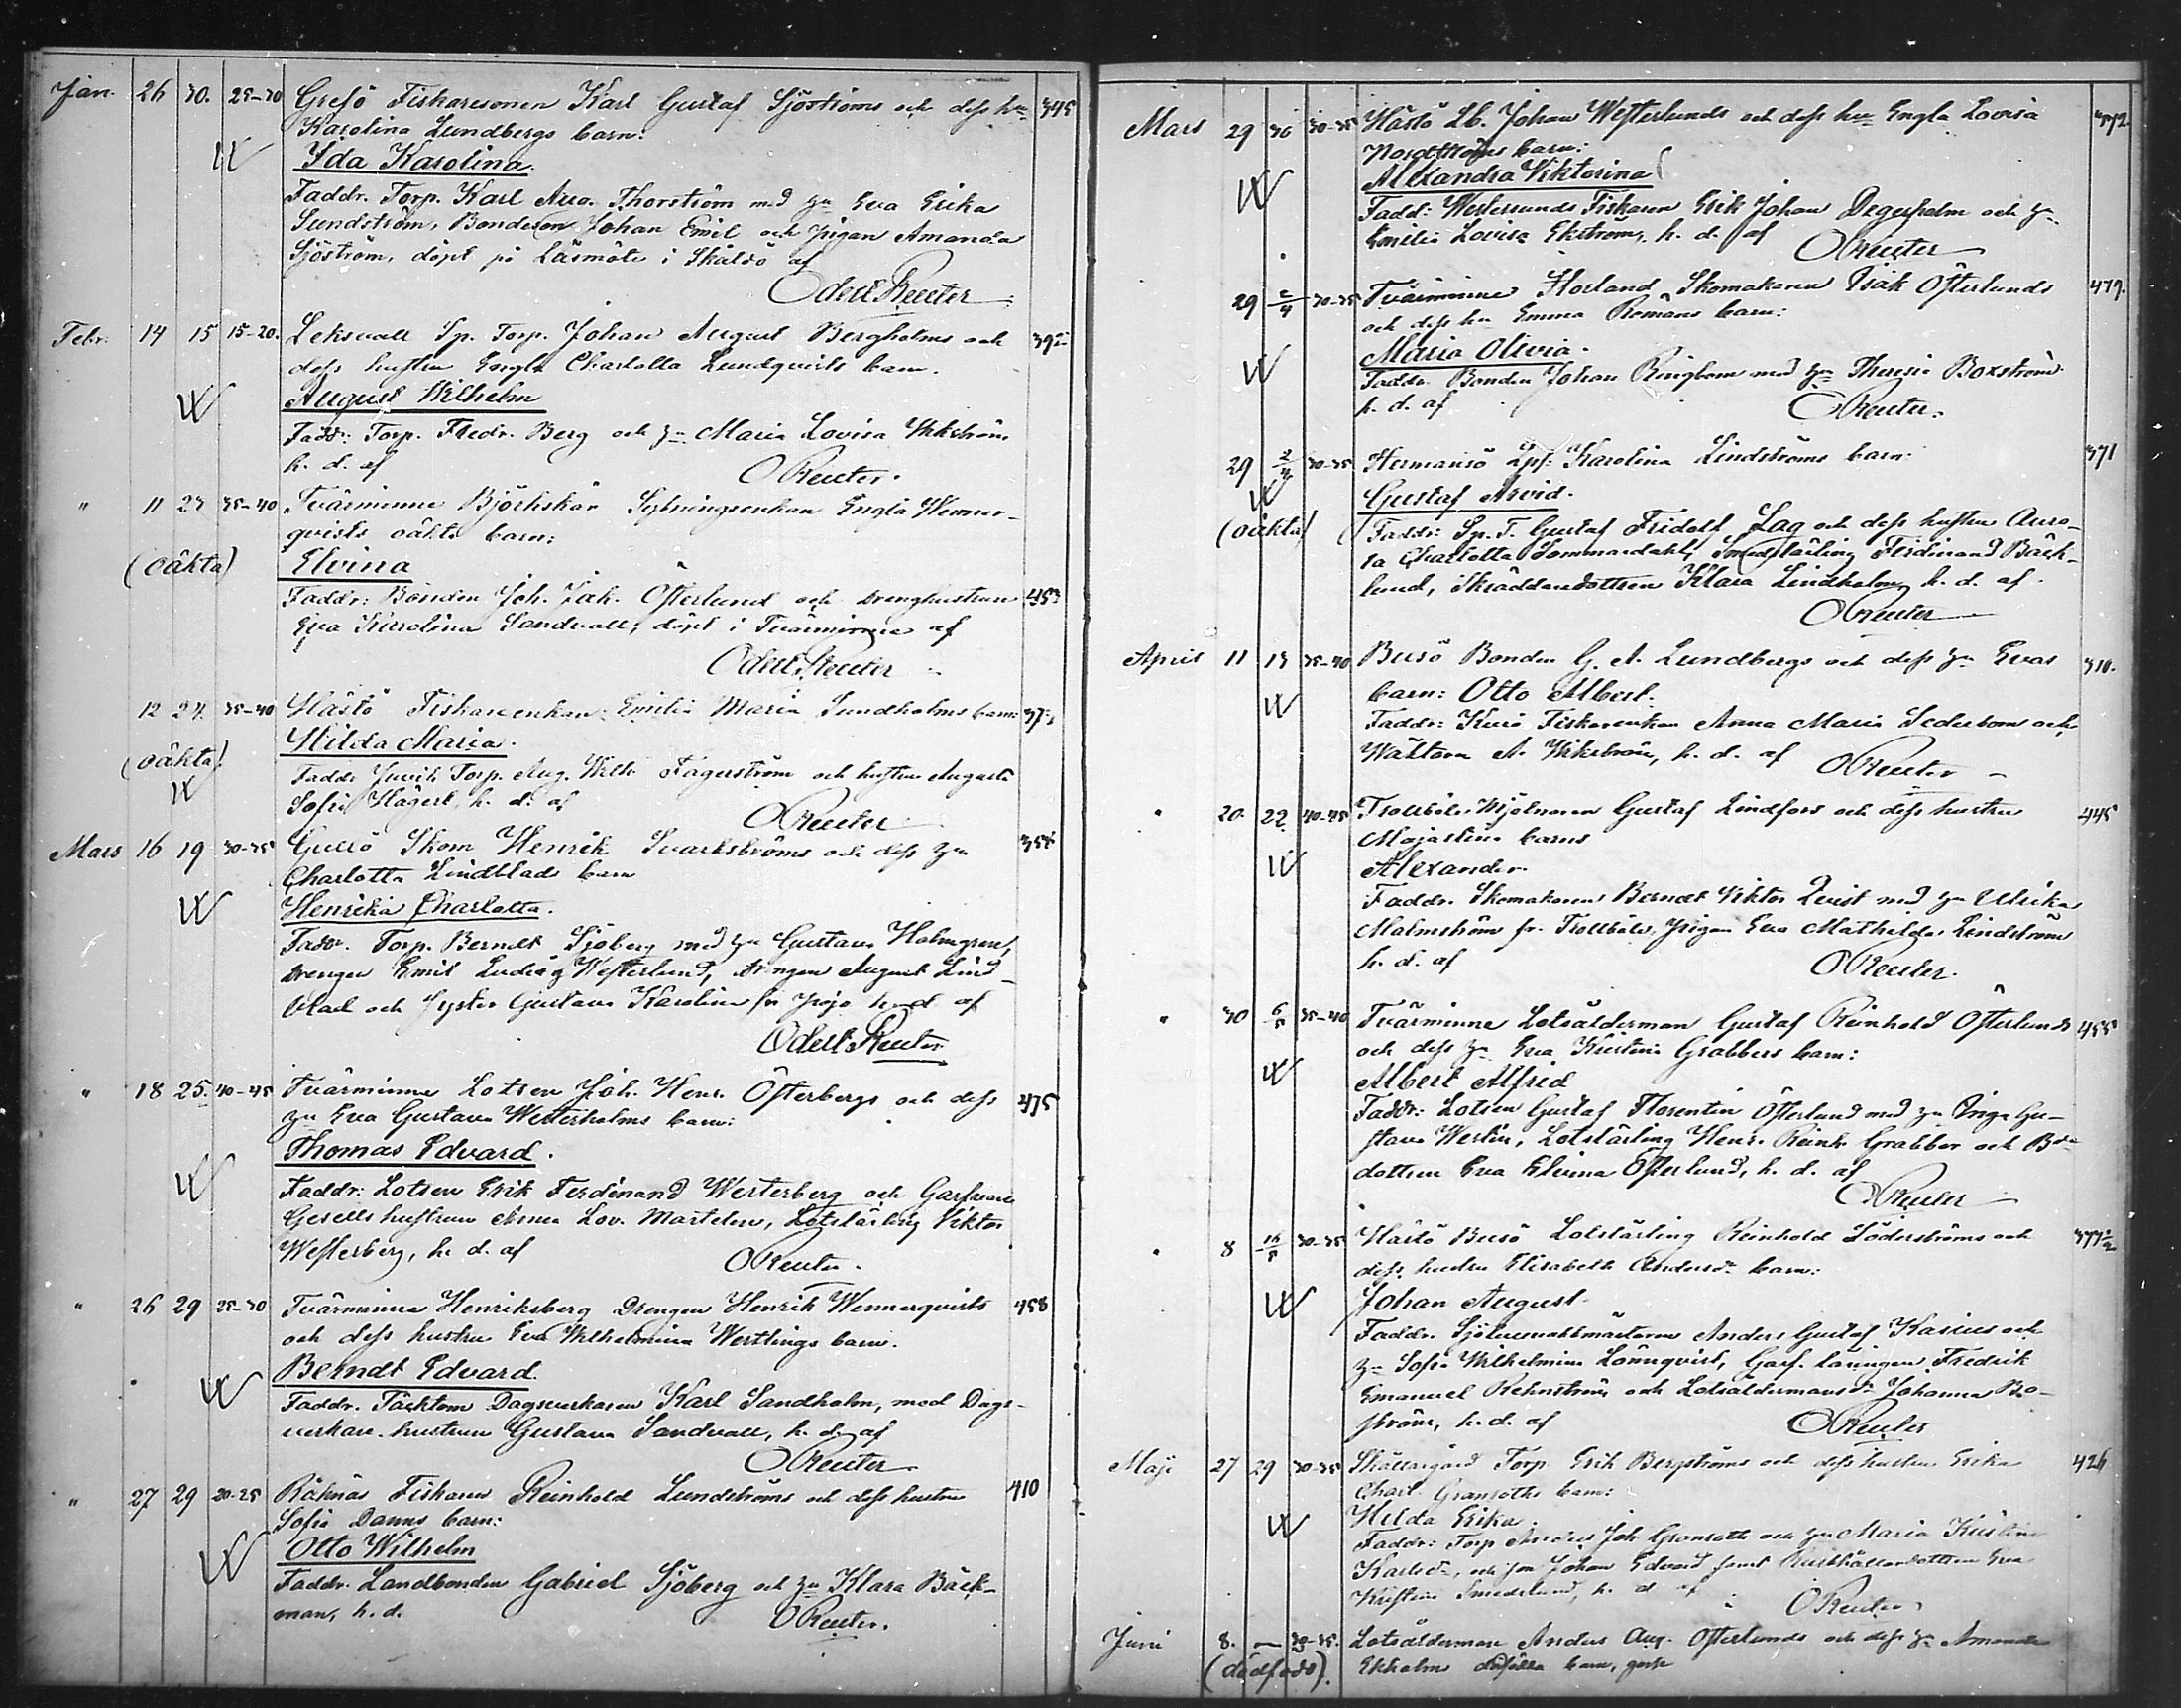 Jan. 26 30. 25-30 Grefö Fiskaresonen Karl Gustaf Sjöströms och dess hu 345
Karolina Lundbergs barn:
Ida Karolina.
Faddr. Torp. Karl Aug. Thorström med hu Eva Erika
Sundström, Bondeson Johan Emil och pigan Amanda
Sjöström, döpt på Läsmöte i Skåldö af
Odert Reuter
Febr. 14 15 15-20. Leksvall Sp. Torp. Johan August Bergholms och
dess hustru Engla Charlotta Lundqvists barn.
August Wilhelm
Faddr: Torp. Fredr. Berg och hu Maria Lovisa Wikström
h. d. af OReuter.
" 11 23 35-40 Tvärminne Björkskär Sytningsenkan Engla Wenner-
qvists oäkta barn:
(oäkta) Elvina
Faddr: Bonden Joh. Jak. Österlund och drenghustrun 453
Eva Karolina Sandvall, döpt i Tvärminne af
Odert Reuter
12 24. 35-40 Hästö Fiskareenkan Emilia Maria Sundholms barn:
Hilda Maria.
(oäkta) Faddr Torp. Aug. Wilh. Fagerström och hustru Augusta
Sofia Hägert, h. d. af
OReuter
Mars 16 19 30-35 Gullö Skom Henrik Svartströms och dess hu
Charlotta Lindblads barn
Henrika Charlotta.
Faddr. Torp. Berndt Sjöberg med hu Gustava Holmgren,
drengen Emil Ludvig Westerlund, drengen August Lind-
blad och Syster Gustava Karolina h. d. af
Odert Reuter
" 18 25. 40-45 Tvärminne Lotsen Joh. Henr. Österbergs och dess 475
hu Eva Gustava Westerholms barn:
Thomas Edvard.
Faddr: Lotsen Erik Ferdinand Westerberg och Garfvare
Gesells hustrun Anna Lov. Martelin, Lotslärling Viktor
Westerberg, h. d. af OReuter.
" 26 29 25-30 Tvärminne Henriksberg Drengen Henrik Wennerqvists 458
och dess hustru Eva Wilhelmina Westlings barn.
Berndt Edvard.
Faddr. Täcktom Dagsverkaren Karl Sandholm, med Dags-
verkare hustrun Gustava Sandvall, h. d. af
OReuter
" 27 29 20-25 Råknäs Fiskaren Reinhold Lundströms och dess hustru 410
Sofia Danns barn:
Otto Wilhelm
Faddr. Landbonden Gabriel Sjöberg och hu Klara Bäck-
man, h. d. OReuter.
Mars 29 30 30-35 Hästö Lb. Johan Westerlunds och dess hu Engla Lovisa 372.
Nordströms barn:
Alexandra Viktorina
Faddr: Westersunds Fiskaren Erik Johan Degerholm och hu
Emilia Lovisa Ekström, h. d. af OReuter
29 2/4 30-35 Tvärminne Storland Skomakaren Isak Österlunds 479.
och dess hu Emma Romans barn:
Maria Olivia.
Faddr. Bonden Johan Ringbom med hu Theresia Boxström
h. d. af OReuter.
29 2/4 30-35 Hermansö Karolina Lindströms barn: 371
Gustaf Arvid.
(oäkta) Faddr: Sp. T. Gustaf Fridolf Lag och dess hustru Auro-
ra Charlotta Sommardahl, Smedslärling Ferdinand Bäck-
lund, Skräddaredottren Klara Lindholm, h. d. af
OReuter
April 11 13 35-40 Busö Bonden G. A. Lundbergs och dess hu Evas 310.
barn: Otto Albert.
Faddr: Fiskareenkan Anna Maria Sederbom och
Wäktaren A. Wikström, h. d. af OReuter
" 20. 22. 40-45 Trollböle Mjölnaren Gustaf Lindfors och dess hustru 445
Majastina barns
Alexander.
Faddr. Skomakaren Berndt Viktor Qvist med hu Ulrika
Malmström fr. Trollböle, Pigan Eva Mathilda Lindström
h. d. af OReuter.
" 30 6/5 35-40 Tvärminne Lotsålderman Gustaf Reinhold Österlunds 455
och dess hu Eva Kristina Grabbers barn:
Albert Alfrid
Faddr: Lotsen Gustaf Florentin Österlund med hu Inga Gu-
stava Westin, Lotslärling Henr. Reinh. Grabber och Bde
dottern Eva Elvina Österlund, h. d. af
OReuter
" 8 16/5 30-35 Hästö Busö Lotslärling Reinhold Söderströms och 377
dess hustru Elisabeth Andersdr barn:
Johan August.
Faddr. Sjötullvaktmästaren Anders Gustaf Karius och
hu Sofia Wilhelmina Lönnqvist, Garf. Läringen Fredrik
Emanuel Rehnström och Lotsåldermansdr Johanna Bo-
ström, h. d. af OReuter
Maji 27 29 30-35 Skållargård Torp Erik Bergströms och dess hustru Erika 426
Charl. Granroths barn:
Hilda Erika.
Faddr: Torp Anders Joh Granroth och hu Maria Kristina
Karlsdr, och son Johan Edvard samt Rusthållaredottren Eva
Kristina Smedslund, h. d. af OReuter
Juni 8. — 30-35. Lotsålderman Anders Aug. Österlunds och dess hu Amanda
(dödfödd). Ekholms dödfödda barn, gosse